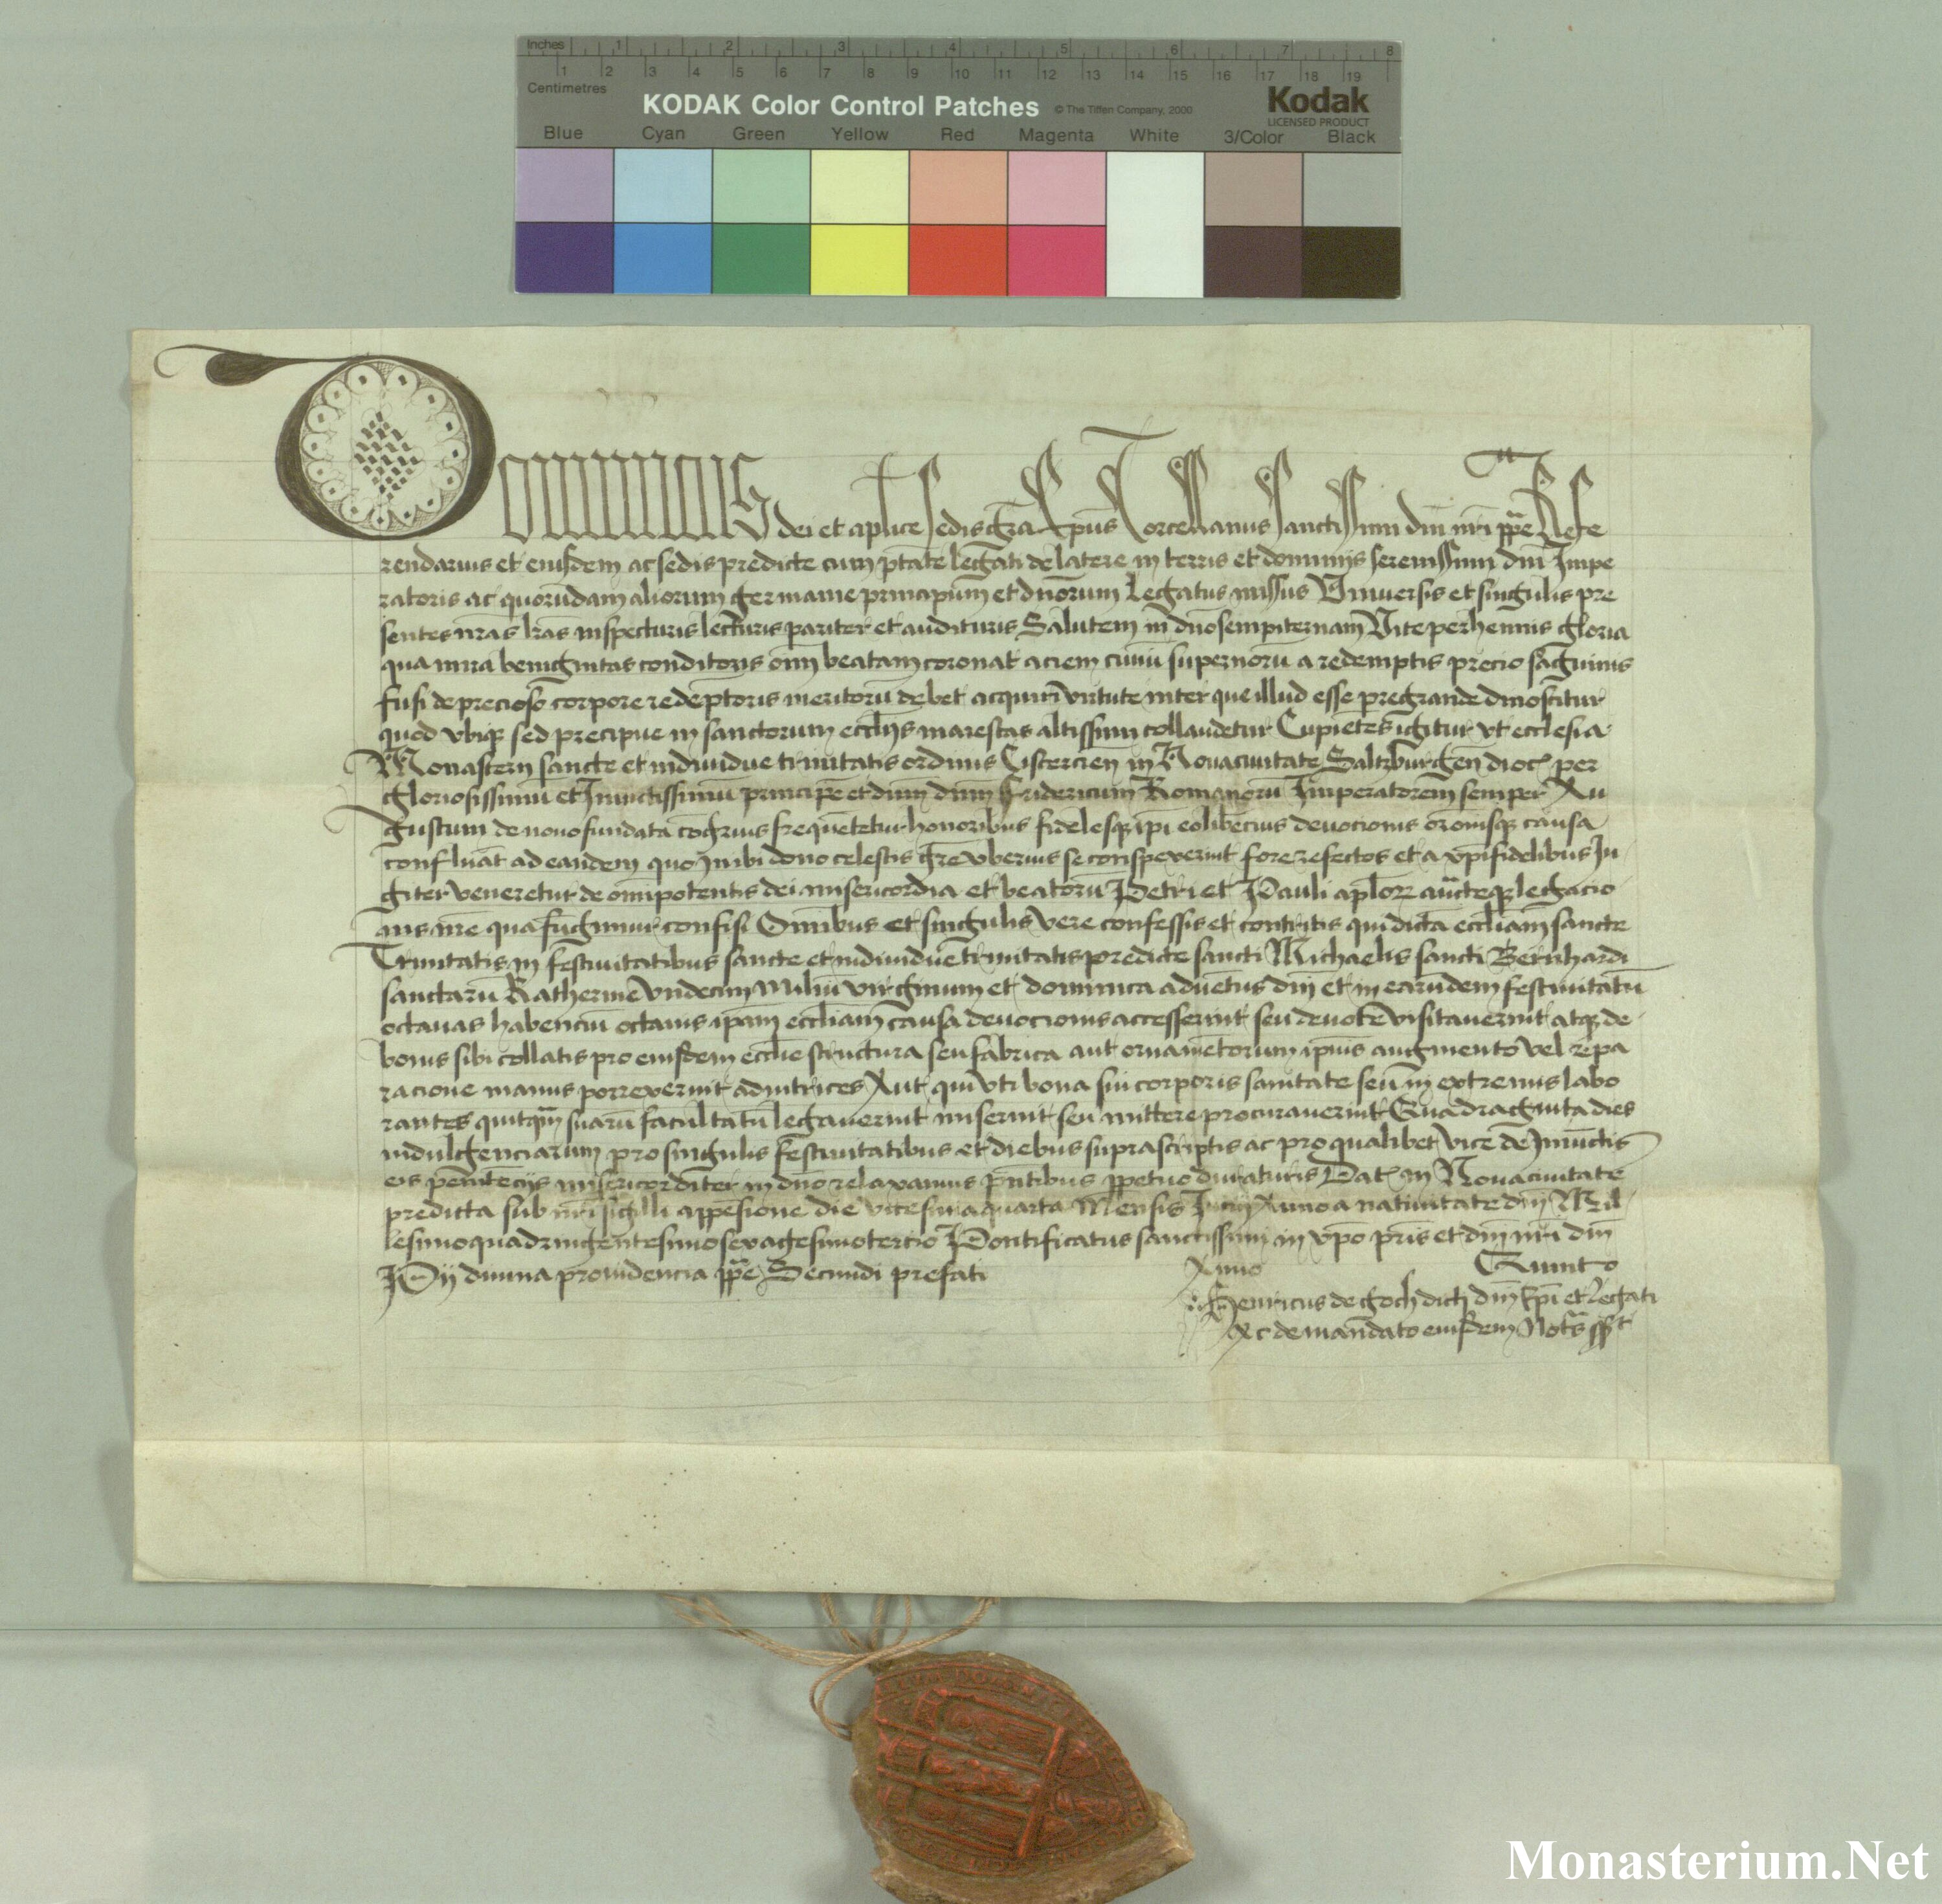 Inches 1 2 3 4 5 6 7 8
1 2 3 4 5 6 7 8 9 10 11 12 13 14 15 16 17 18 19
Centimetres
KODAK Color Control Patches © The Tiffen Company, 2000 Kodak
LICENSED PRODUCT
Blue Cyan Green Yellow Red Magenta White 3/Color Black
Dominicus dei et aplice sedis gra Epus Torcellanus sanctissimi dni nri ppe Refe
rendarius et eiusdem ac sedis predicte cum ptate legati de latere in terris et dominijs serenissimi dni Impe
ratoris ac quorundam aliorum germanie principum et dnorum Legatus missus Vniuersis et singulis pre
sentes nras lras inspecturis lecturis pariter et audituris Salutem in dno sempiternam Vite perhennis gloria
qua mira benignitas conditoris oim beatam coronat aciem ciuiu supernoru a redemptis precio saguinis
fusi de precioso corpore redeptoris meritoru debet acquiri virtute inter que illud esse pregrande dinoscitur
quod vbiqz sed precipue in sanctorum eccliis maiestas altissimi collaudetur Cupietes igitur vt ecclesia
Monasterij sancte et indiuidue trinitatis ordinis Cistercien in Nouaciuitate Saltzburgen dioc per
gloriosissimu et Inuictissimu principe et dnm dnm Fridericum Romanoru Imperatorem semper Au
gustum de nouo fundata cogruis frequetetur honoribus fidelesqz ipi eo libecius deuocionis oronisqz causa
confluat ad eandem quo inibi dono celestis gre vberius se conspexerint fore refectos et a xpifidelibus Ju
giter veneretur de omipotentis dei misericordia et beatoru Petri et Pauli aplor aucteqz legacio
nis nre qua fungimur confisi Omibus et singulis vere confessis et contritis qui dicta eccliam sancte
Trinitatis in festiuitatibus sancte et indiuidue trinitatis predicte sancti Michaelis sancti Bernhardi
sanctaru Katherine vndecim Miliu virginum et dominica aduetus dni et in earundem festiuitatu
octauas habenciu octauis ipam eccliam causa deuocionis accesserint seu deuote visitauerint atqz de
bonis sibi collatis pro eiusdem ecclie structura seu fabrica aut ornametorum ipius augmento vel repa
racione manus porrexerint adiutrices Aut qui vti bona sui corporis sanitate seu in extremis labo
rantes quitqm suaru facultatu legauerint miserint seu mittere procurauerint Quadraginta dies
indulgenciarum pro singulis festiuitatibus et diebus suprascriptis ac pro qualibet vice de iniuctis
eis penitecijs misericorditer in dno relaxamus pntibus ppetuo duraturis Dat in Nouaciuitate
predicta sub nri sigilli appesione die vicesima quarta Mensis Anno a natiuitate dni Mil
lesimoquadringentesimosexagesimotercio Pontificatus sanctissimi in xpo pris et dni nri dni
Pij diuina prouidencia ppe Secundi prefati Anno Quinto
Henricus de goch dicti dni Epi et legati
Ac de mandato eiusdem Notrs sst
Monasterium.Net